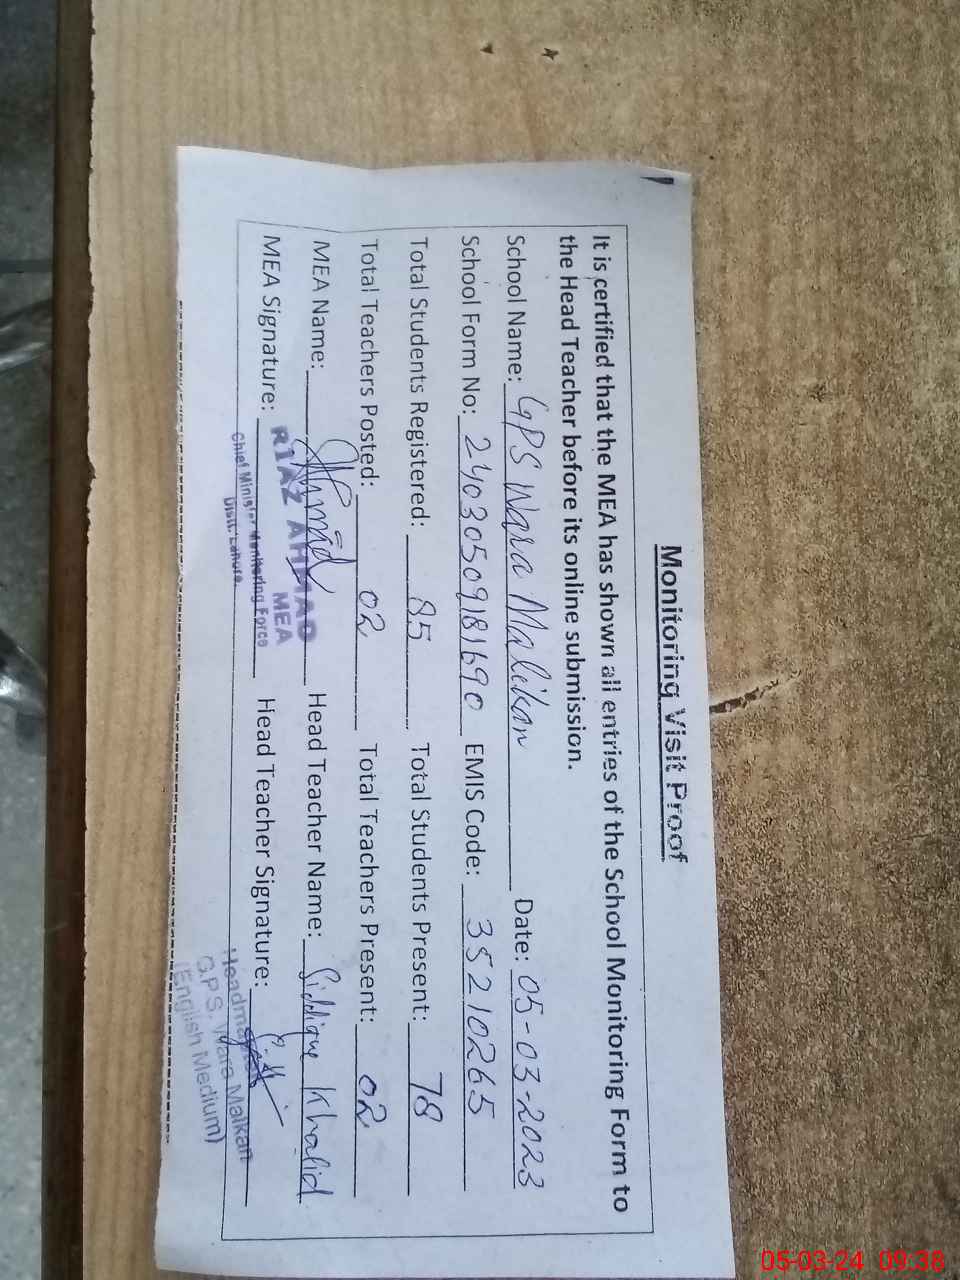 Monitoring Visit Proof
It is certified that the MEA has shown all entries of the School Monitoring Form to
the Head Teacher before its online submission.
School Name: GPS Wara Malikan Date: 05-03-2023
School Form No: 24030509181690 EMIS Code: 35210265
Total Students Registered: 85 Total Students Present: 78
Total Teachers Posted: 02 Total Teachers Present: 02
MEA Name: Ahmad Head Teacher Name: Siddique Khalid
MEA Signature: Head Teacher Signature:
RIAZ AHMAD
MEA
Chief Minister Monitoring Force
Distt. Lahore.
Headmaster
G.P.S. Wara Malkan
(English Medium)
05-03-24 09:38